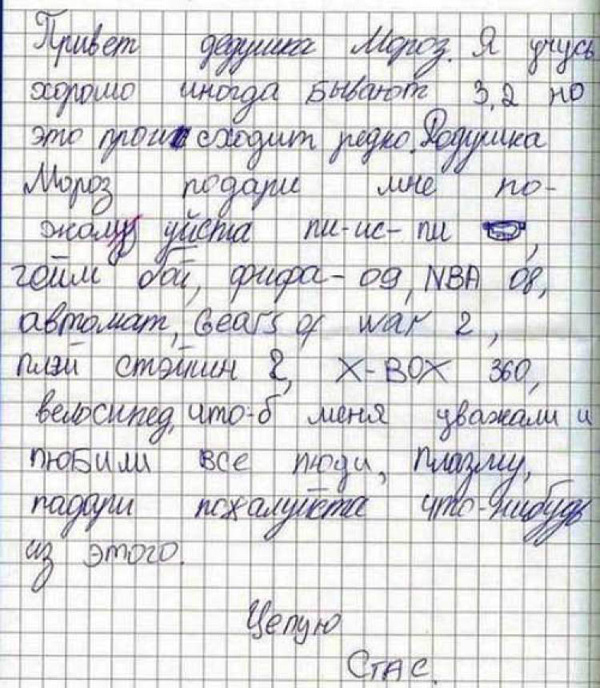 Привет дедушка Мороз. Я учусь
хорошо иногда бывают 3,2 но
это происходит редко. Дедушка
Мороз подари мне по-
жалуйста пи-ис-пи,
гейм бой, фифа-09, NBA 08,
автомат, Gears of war 2,
плэй стэйшин 2, X-BOX 360,
велосипед, что-б меня уважали и
любили все люди, плазму,
падари пожалуйста что-нибудь
из этого.
Целую
Стас.